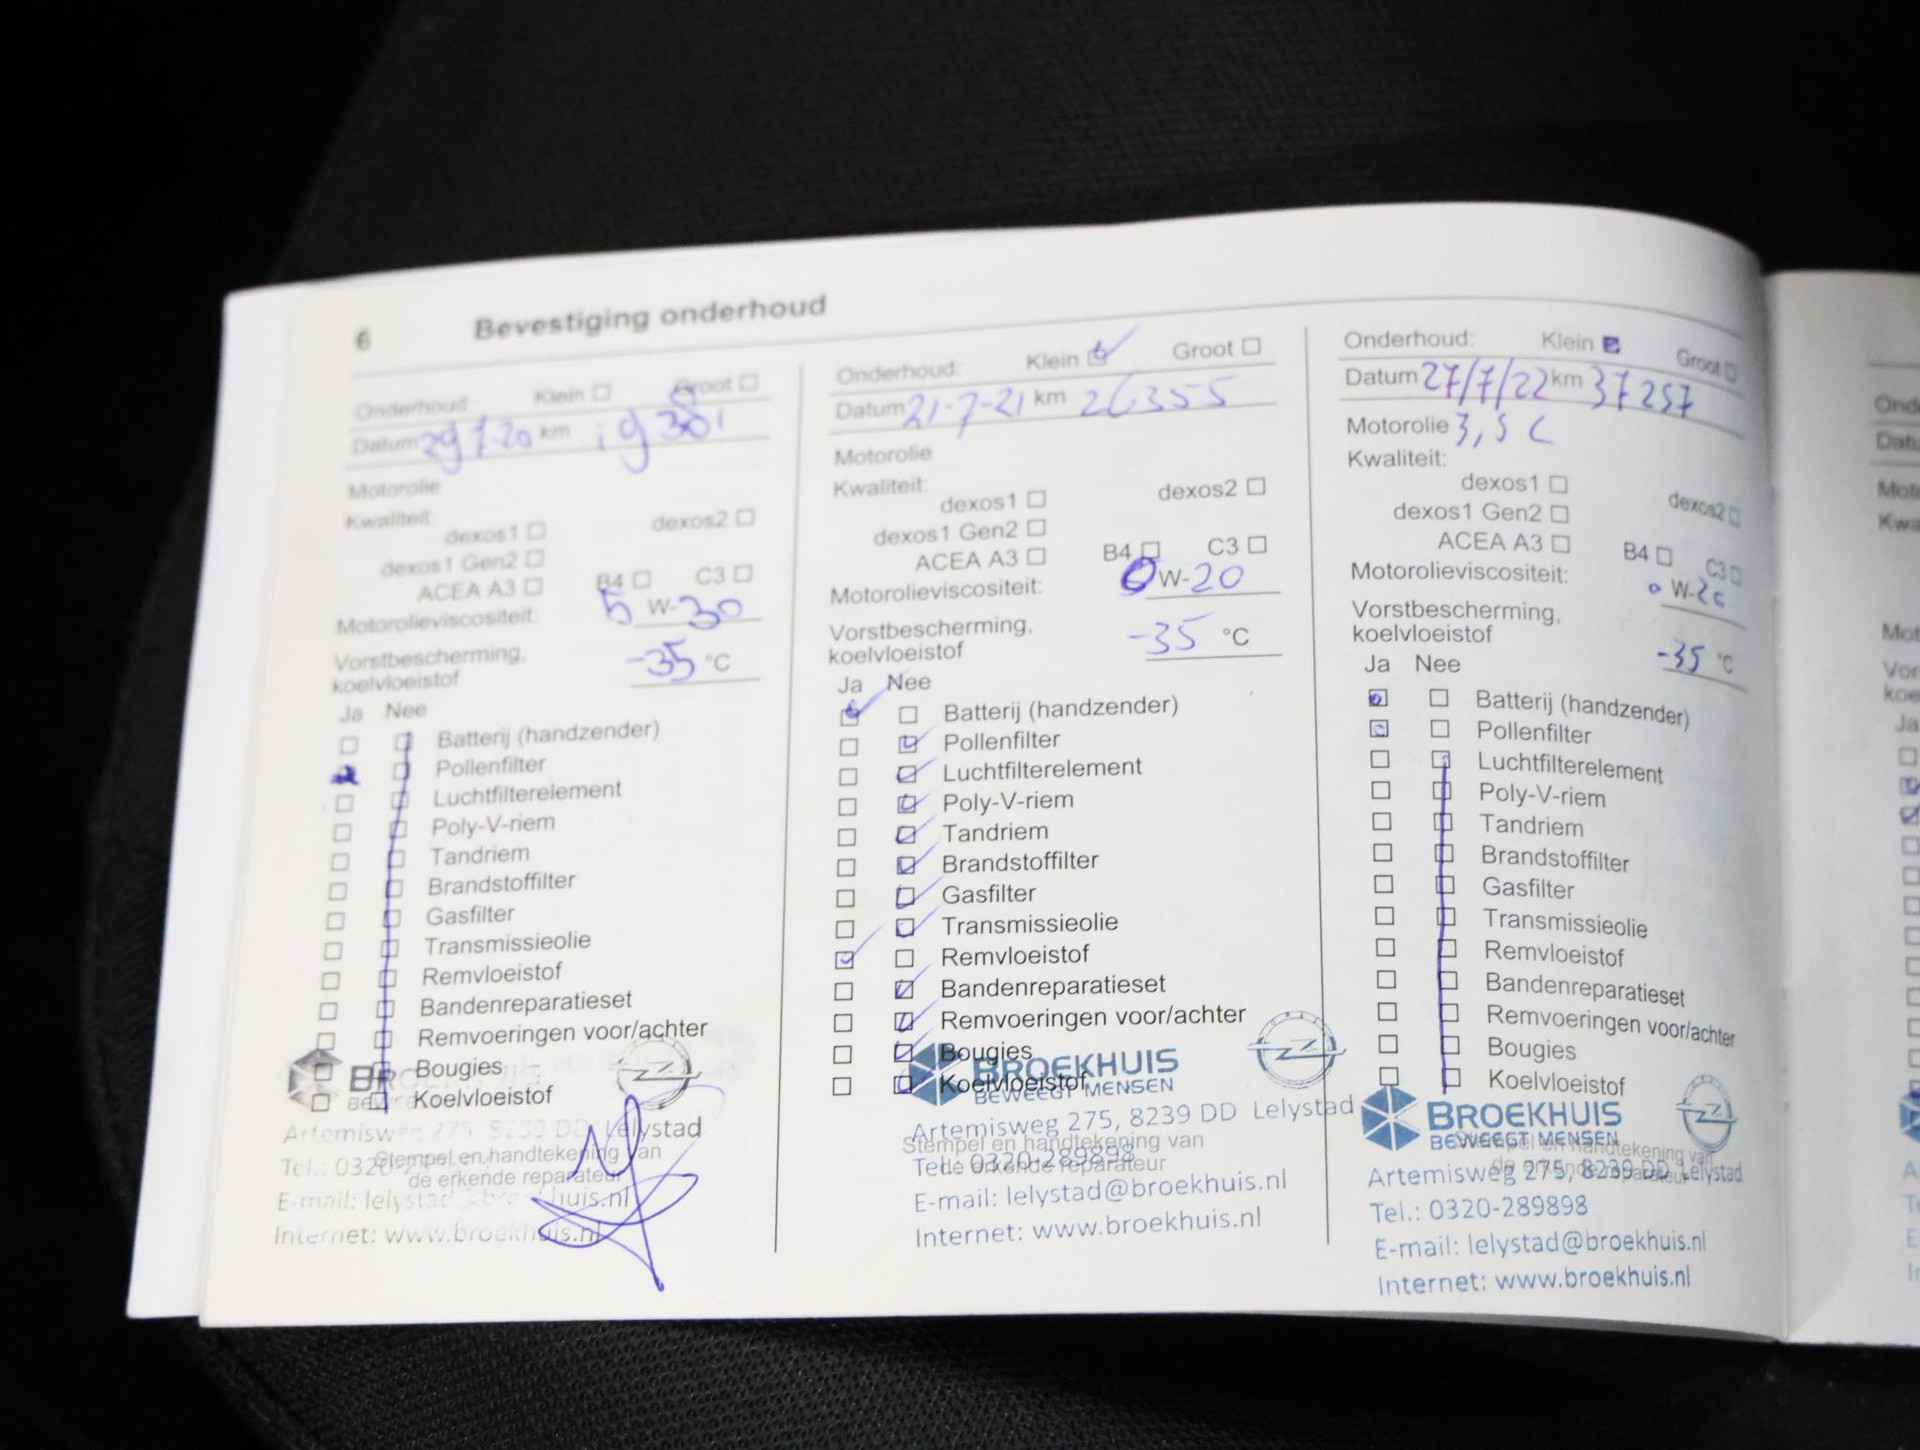 6 Bevestiging onderhoud
Onderhoud: Klein Groot
Datum 29 7-20 km
Motorolie
Kwaliteit:
dexos1 dexos2
dexos1 Gen2
ACEA A3 B4 C3
Motorolieviscositeit: 5 W-30
Vorstbescherming,
koelvloeistof -35 °C
Ja Nee
Batterij (handzender)
Pollenfilter
Luchtfilterelement
Poly-V-riem
Tandriem
Brandstoffilter
Gasfilter
Transmissieolie
Remvloeistof
Bandenreparatieset
Remvoeringen voor/achter
Bougies
Koelvloeistof
Artemisweg 275, 8239 DD Lelystad
Stempel en handtekening van
de erkende reparateur
Tel.: 0320-
E-mail: lelystad@broekhuis.nl
Internet: www.broekhuis.nl
Onderhoud: Klein Groot
Datum 21-7-21 km 26355
Motorolie
Kwaliteit:
dexos1 dexos2
dexos1 Gen2
ACEA A3 B4 C3
Motorolieviscositeit: 0 W-20
Vorstbescherming,
koelvloeistof -35 °C
Ja Nee
Batterij (handzender)
Pollenfilter
Luchtfilterelement
Poly-V-riem
Tandriem
Brandstoffilter
Gasfilter
Transmissieolie
Remvloeistof
Bandenreparatieset
Remvoeringen voor/achter
Bougies
Koelvloeistof
BROEKHUIS
BEWEEGT MENSEN
Artemisweg 275, 8239 DD Lelystad
Stempel en handtekening van
de erkende reparateur
Tel.: 0320-289898
E-mail: lelystad@broekhuis.nl
Internet: www.broekhuis.nl
Onderhoud: Klein Groot
Datum 27/7/22 km 37257
Motorolie 3,5 L
Kwaliteit:
dexos1 dexos2
dexos1 Gen2
ACEA A3 B4 C3
Motorolieviscositeit: 0 W-20
Vorstbescherming,
koelvloeistof -35 °C
Ja Nee
Batterij (handzender)
Pollenfilter
Luchtfilterelement
Poly-V-riem
Tandriem
Brandstoffilter
Gasfilter
Transmissieolie
Remvloeistof
Bandenreparatieset
Remvoeringen voor/achter
Bougies
Koelvloeistof
BROEKHUIS
BEWEEGT MENSEN
Stempel en handtekening van
de erkende reparateur
Artemisweg 275, 8239 DD Lelystad
Tel.: 0320-289898
E-mail: lelystad@broekhuis.nl
Internet: www.broekhuis.nl